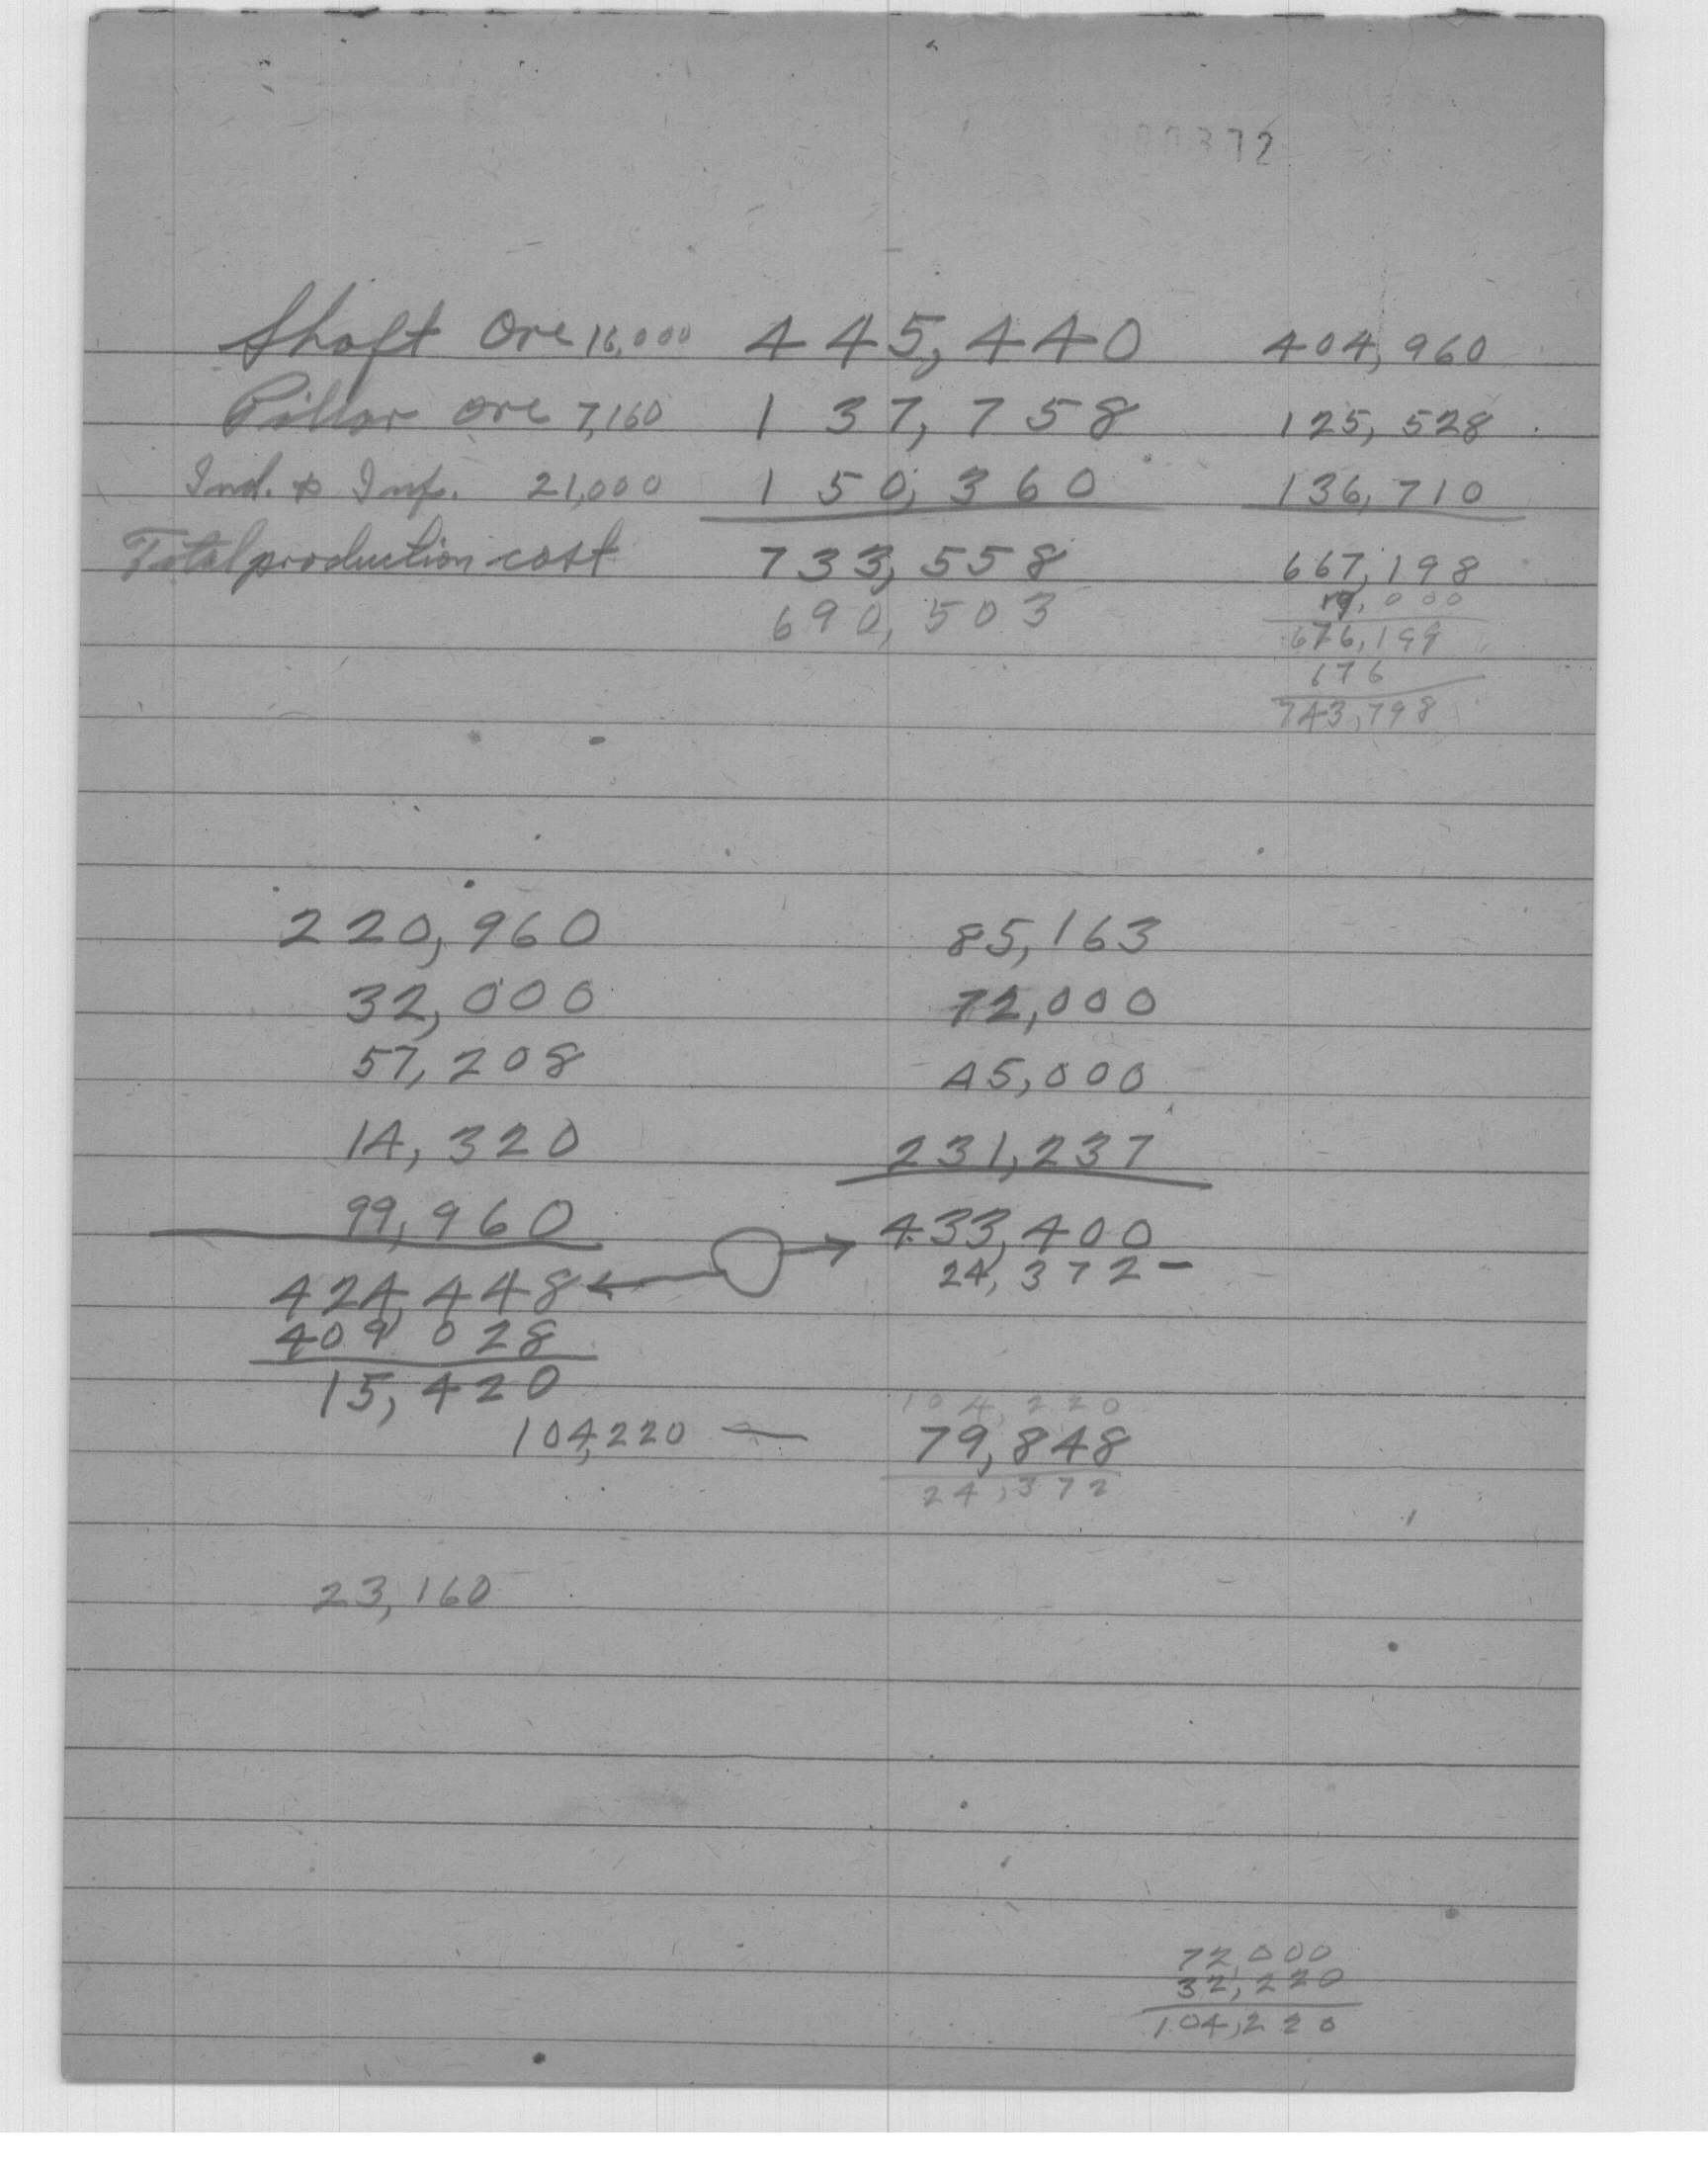 372
Shaft Ore 16,000 445,440 404,960
Pillar ore 7,160 137,758 125,528
Ind. & Inf. 21,000 150,360 136,710
Total production cost 733,558 667,198
690,503 19,000
676,199
676
743,798
220,960 85,163
32,000 72,000
57,208 45,000
14,320 231,237
99,960 433,400
424,448 24,372 -
409 028
15,420 104,220
104,220 — 79,848
24,372
23,160
72,000
32,220
104,220